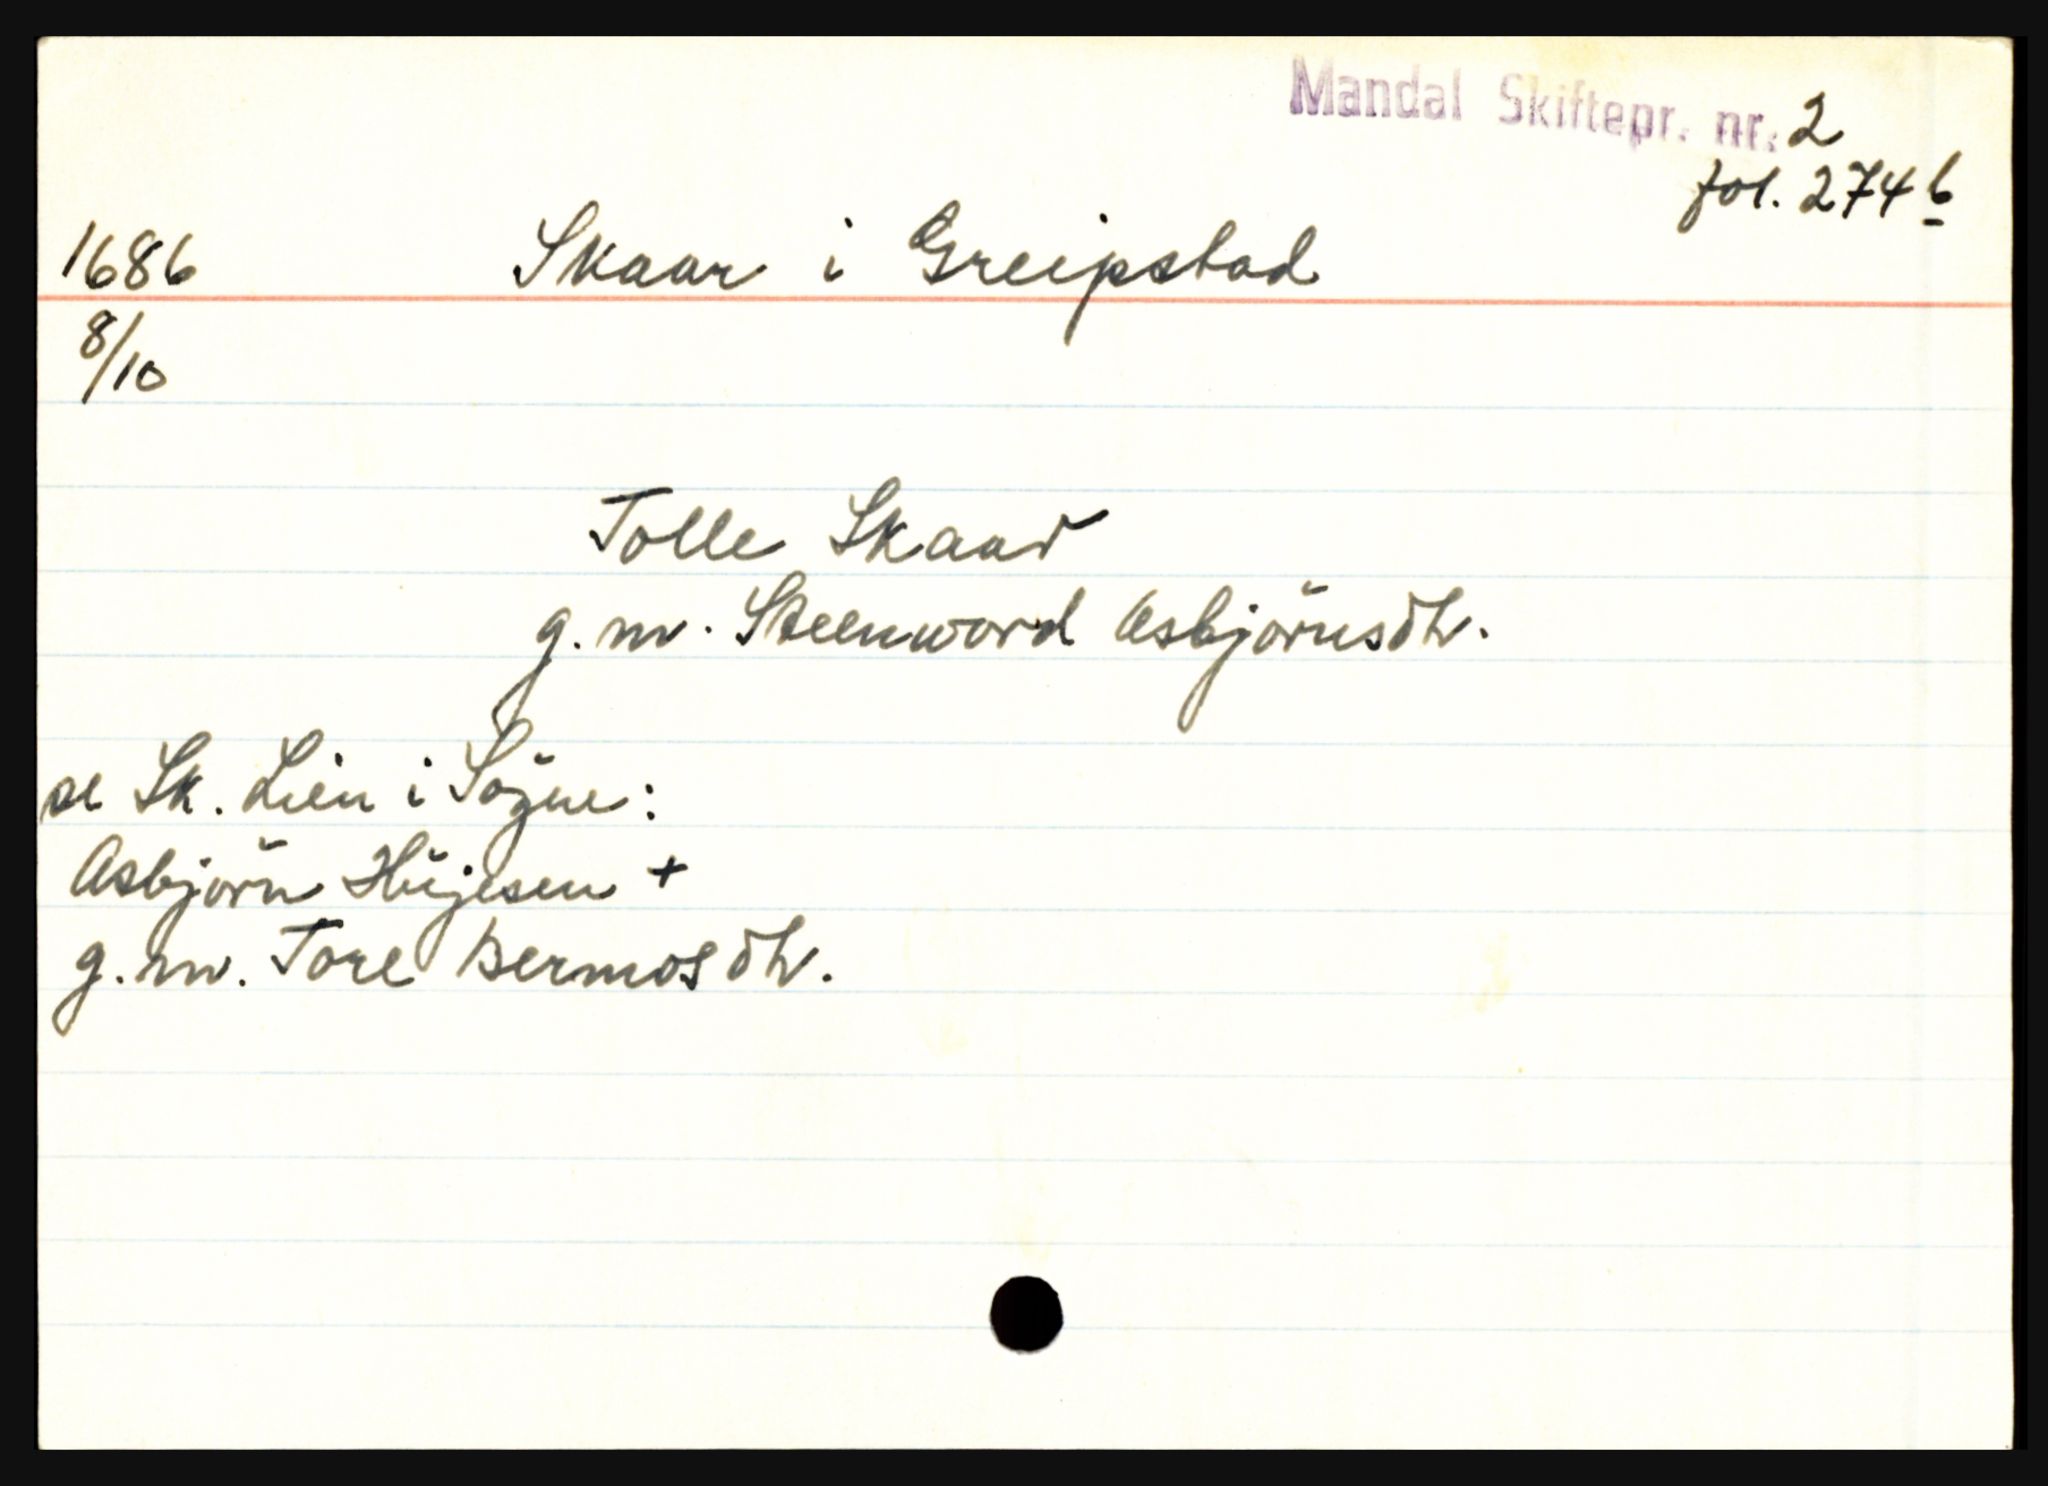 Mandal Skiftepr. nr. 2
fol. 274 b
1686 Skaar i Greipstad
8/10
Tolle Skaar
g. m. Steenword Asbjörnsdtr.
se Sk. Lien i Sögne:
Asbjörn Hujesen +
g. m. Tore Bermosdtr.